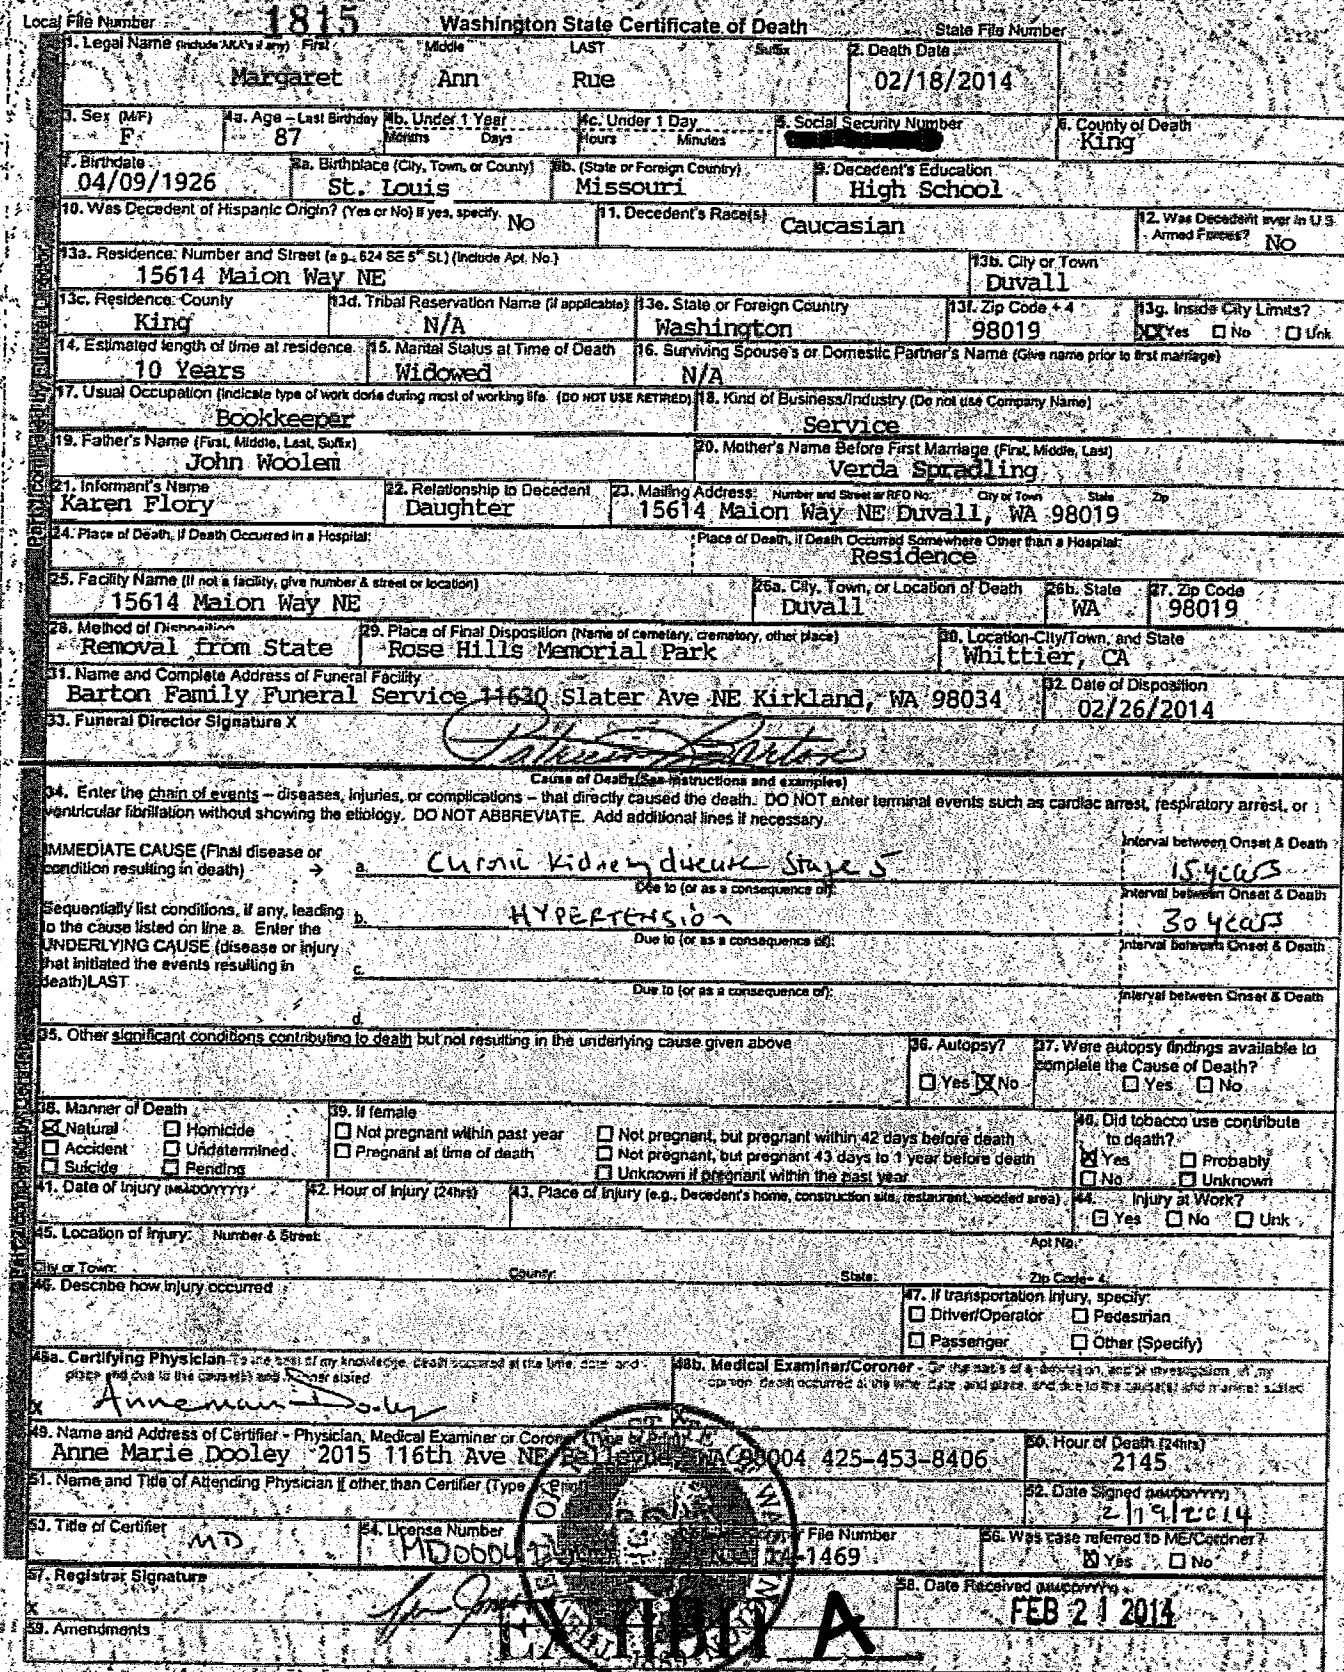 Local File Number 1815 Washington State Certificate of Death State File Number
1. Legal Name (include AKA's if any) First Middle LAST Suffix 2. Death Date
Margaret Ann Rue 02/18/2014
3. Sex (M/F) 4a. Age – Last Birthday 4b. Under 1 Year 4c. Under 1 Day 5. Social Security Number 6. County of Death
F 87 Months Days Hours Minutes King
7. Birthdate 8a. Birthplace (City, Town, or County) 8b. (State or Foreign Country) 9. Decedent's Education
04/09/1926 St. Louis Missouri High School
10. Was Decedent of Hispanic Origin? (Yes or No) If yes, specify. No 11. Decedent's Race(s) Caucasian 12. Was Decedent ever in U.S. Armed Forces? No
13a. Residence: Number and Street (e.g., 624 SE 5th St.) (Include Apt. No.) 13b. City or Town
15614 Maion Way NE Duvall
13c. Residence: County 13d. Tribal Reservation Name (if applicable) 13e. State or Foreign Country 13f. Zip Code + 4 13g. Inside City Limits?
King N/A Washington 98019 Yes No Unk
14. Estimated length of time at residence. 15. Marital Status at Time of Death 16. Surviving Spouse's or Domestic Partner's Name (Give name prior to first marriage)
10 Years Widowed N/A
17. Usual Occupation (Indicate type of work done during most of working life. (DO NOT USE RETIRED) 18. Kind of Business/Industry (Do not use Company Name)
Bookkeeper Service
19. Father's Name (First, Middle, Last, Suffix) 20. Mother's Name Before First Marriage (First, Middle, Last)
John Woolem Verda Spradling
21. Informant's Name 22. Relationship to Decedent 23. Mailing Address: Number and Street or RFD No. City or Town State Zip
Karen Flory Daughter 15614 Maion Way NE Duvall, WA 98019
24. Place of Death, if Death Occurred in a Hospital: Place of Death, if Death Occurred Somewhere Other than a Hospital:
Residence
25. Facility Name (If not a facility, give number & street or location) 26a. City, Town, or Location of Death 26b. State 27. Zip Code
15614 Maion Way NE Duvall WA 98019
28. Method of Disposition 29. Place of Final Disposition (Name of cemetery, crematory, other place) 30. Location-City/Town, and State
Removal from State Rose Hills Memorial Park Whittier, CA
31. Name and Complete Address of Funeral Facility 32. Date of Disposition
Barton Family Funeral Service 11630 Slater Ave NE Kirkland, WA 98034 02/26/2014
33. Funeral Director Signature X
Cause of Death (See instructions and examples)
34. Enter the chain of events – diseases, injuries, or complications – that directly caused the death. DO NOT enter terminal events such as cardiac arrest, respiratory arrest, or
ventricular fibrillation without showing the etiology. DO NOT ABBREVIATE. Add additional lines if necessary.
IMMEDIATE CAUSE (Final disease or condition resulting in death) → a. Chronic Kidney disease Stage 5 Interval between Onset & Death 15 years
Due to (or as a consequence of):
Sequentially list conditions, if any, leading to the cause listed on line a. Enter the UNDERLYING CAUSE (disease or injury that initiated the events resulting in death) LAST
b. HYPERTENSION Interval between Onset & Death 30 years
Due to (or as a consequence of):
c. Interval between Onset & Death
Due to (or as a consequence of):
d. Interval between Onset & Death
35. Other significant conditions contributing to death but not resulting in the underlying cause given above 36. Autopsy? 37. Were autopsy findings available to complete the Cause of Death?
Yes No Yes No
38. Manner of Death 39. If female 40. Did tobacco use contribute to death?
Natural Homicide Not pregnant within past year Not pregnant, but pregnant within 42 days before death
Accident Undetermined Pregnant at time of death Not pregnant, but pregnant 43 days to 1 year before death Yes Probably
Suicide Pending Unknown if pregnant within the past year No Unknown
41. Date of Injury (MM/DD/YYYY) 42. Hour of Injury (24hrs) 43. Place of Injury (e.g., Decedent's home, construction site, restaurant, wooded area) 44. Injury at Work?
Yes No Unk
45. Location of Injury: Number & Street: Apt No.
City or Town: County: State: Zip Code+ 4:
46. Describe how injury occurred 47. If transportation injury, specify:
Driver/Operator Pedestrian
Passenger Other (Specify)
48a. Certifying Physician-To the best of my knowledge, death occurred at the time, date and place and due to the cause(s) and manner stated
48b. Medical Examiner/Coroner - On the basis of examination, and/or investigation, in my opinion, death occurred at the time, date, and place, and due to the cause(s) and manner stated
X
49. Name and Address of Certifier - Physician, Medical Examiner or Coroner (Type or Print) 50. Hour of Death (24hrs)
Anne Marie Dooley 2015 116th Ave NE Bellevue WA 98004 425-453-8406 2145
51. Name and Title of Attending Physician if other than Certifier (Type or Print) 52. Date Signed (MM/DD/YYYY)
2/19/2014
53. Title of Certifier 54. License Number File Number 56. Was case referred to ME/Coroner?
MD MD0004 14-1469 Yes No
57. Registrar Signature 58. Date Received (MM/DD/YYYY)
X FEB 21 2014
59. Amendments
EXHIBIT A